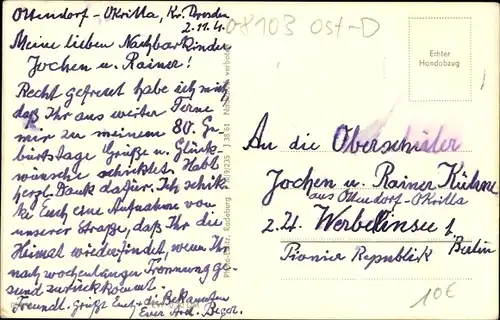 Ottendorf-Okrilla, Kr. Dresden
2.11.61
08103 Ost-D
Meine lieben Nachbarkinder
Jochen u. Rainer!
Recht gefreut habe ich mich,
daß Ihr aus weiter Ferne
mir zu meinem 80. Ge-
burtstage Grüße u. Glück-
wünsche schicktet. Habt
herzl. Dank dafür. Ich schik-
ke Euch eine Aufnahme von
unserer Straße, daß Ihr die
Heimat wiederfindet, wenn Ihr
nach wochenlanger Trennung ge-
sund zurückkommt.
Freundl. grüßt Euch u. die Bekannten
Euer
Echter
Handabzug
An die Oberschüler
Jochen u. Rainer Kühne
aus Ottendorf-Okrilla
z. Zt. Werbellinsee b. Berlin
Pionier Republik
10€